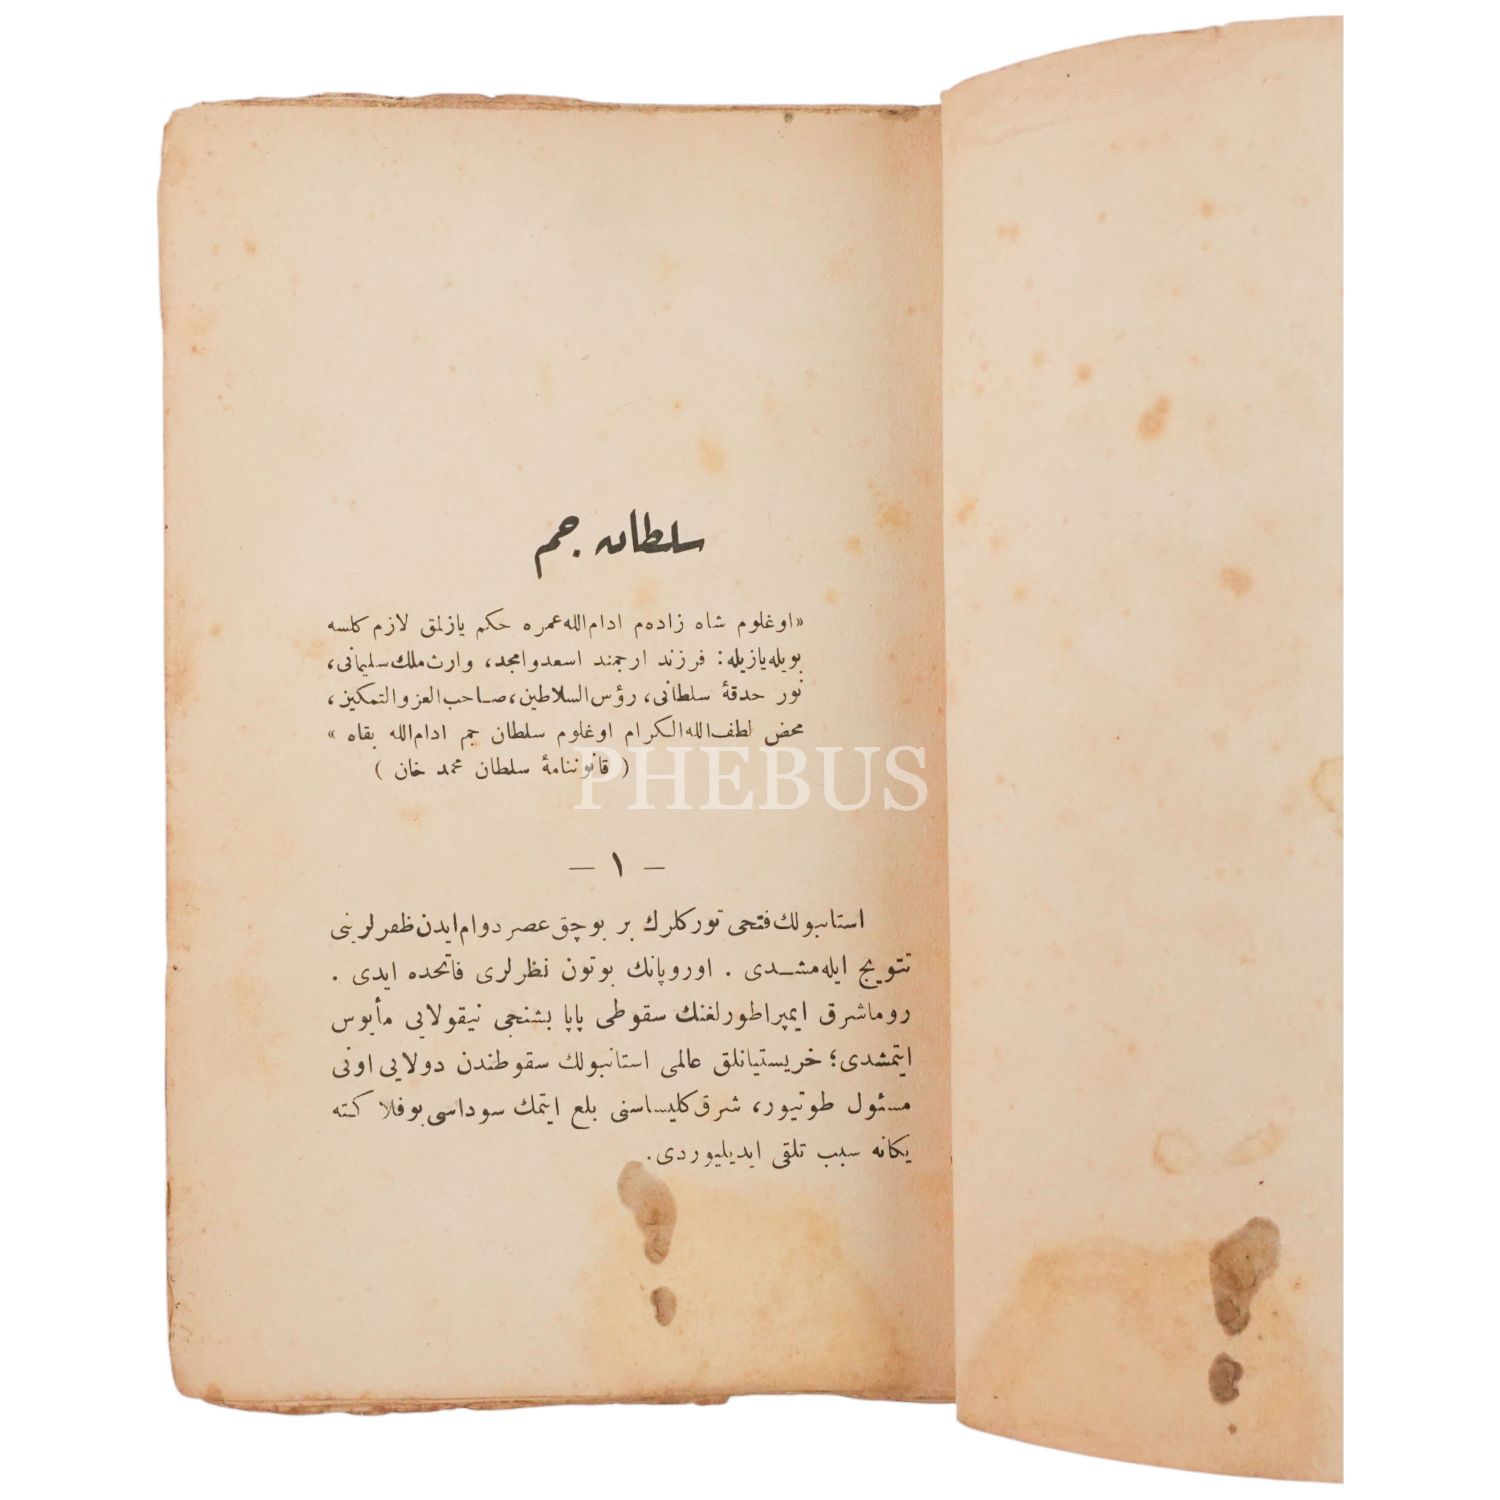 سلطان جم
«اوغلوم شاه زاده‌م ادام‌الله‌عمره حكم يازلمق لازم كلسه
بويله‌يازيله: فرزند ارجمند اسعدوامجد، وارث‌ملك‌سليمانى،
نور حدقۀ سلطانى، رؤس‌السلاطين،صاحب‌العزوالتمكين،
محض لطف‌الله‌الكرام اوغلوم سلطان جم ادام‌الله بقاه»
( قانوننامۀ سلطان محمد خان )
PHEBUS
— ١ —
استانبولك‌فتحى توركلرك بر بوچق عصر دوام‌ايدن‌ظفرلرينى
تتويج ايله‌مشدى . اوروپانك بوتون نظرلرى فاتحده ايدى .
روماشرق ايمپراطورلغنك سقوطى پاپا بشنجى نيقولايى مأيوس
ايتمشدى؛ خريستيانلق عالمى استانبولك سقوطندن دولايى اونى
مسئول طوتيور، شرق‌كليساسنى بلع ايتمك سوداسى بوفلاكته
يكانه سبب تلقى ايديليوردى.